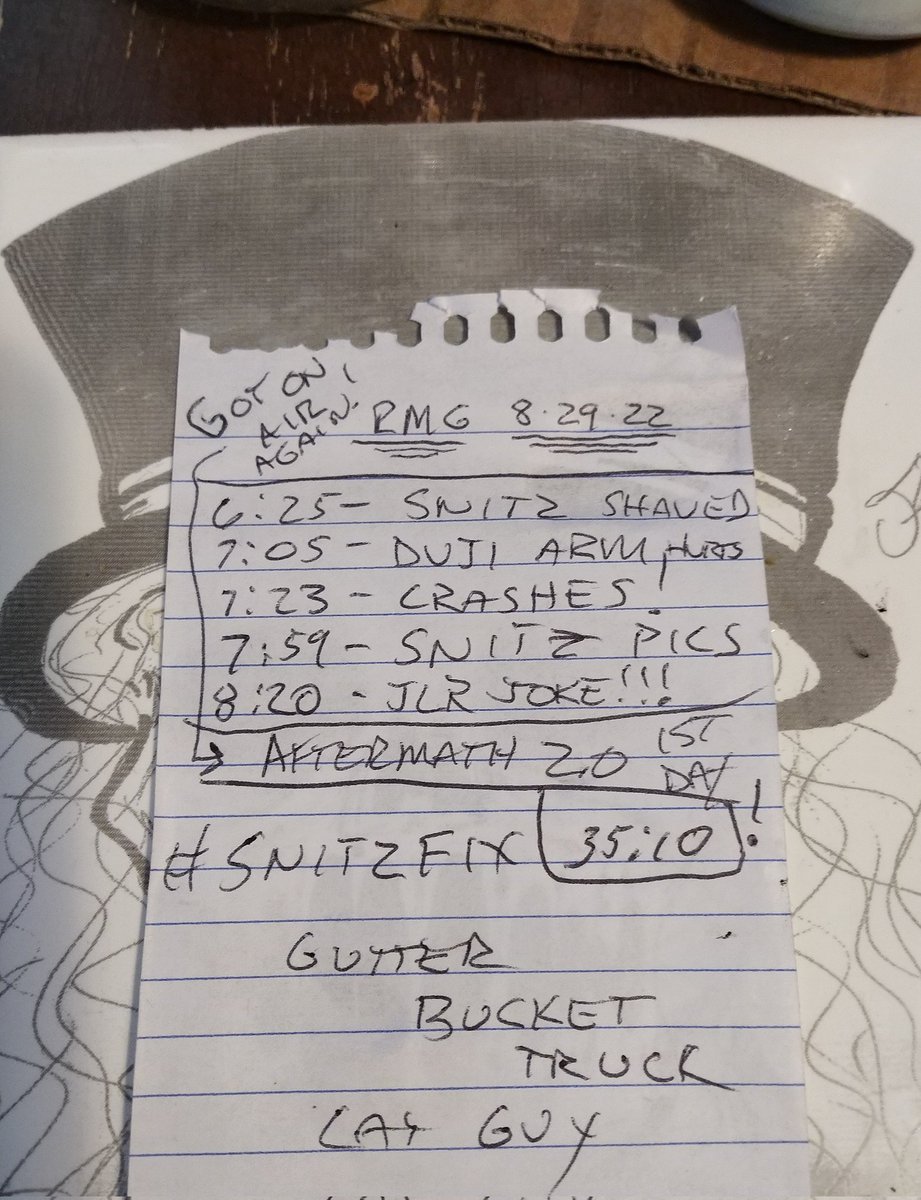 GOT ON
AIR
AGAIN!
RMG 8.29.22
6:25 - SNITZ SHAVED
7:05 - DUJI ARM HURTS
7:23 - CRASHES!
7:59 - SNITZ PICS
8:20 - JLR JOKE!!!
AFTERMATH 2.0 1ST
DAY!
#SNITZFIX 35:10
GUTTER
BUCKET
TRUCK
GUY